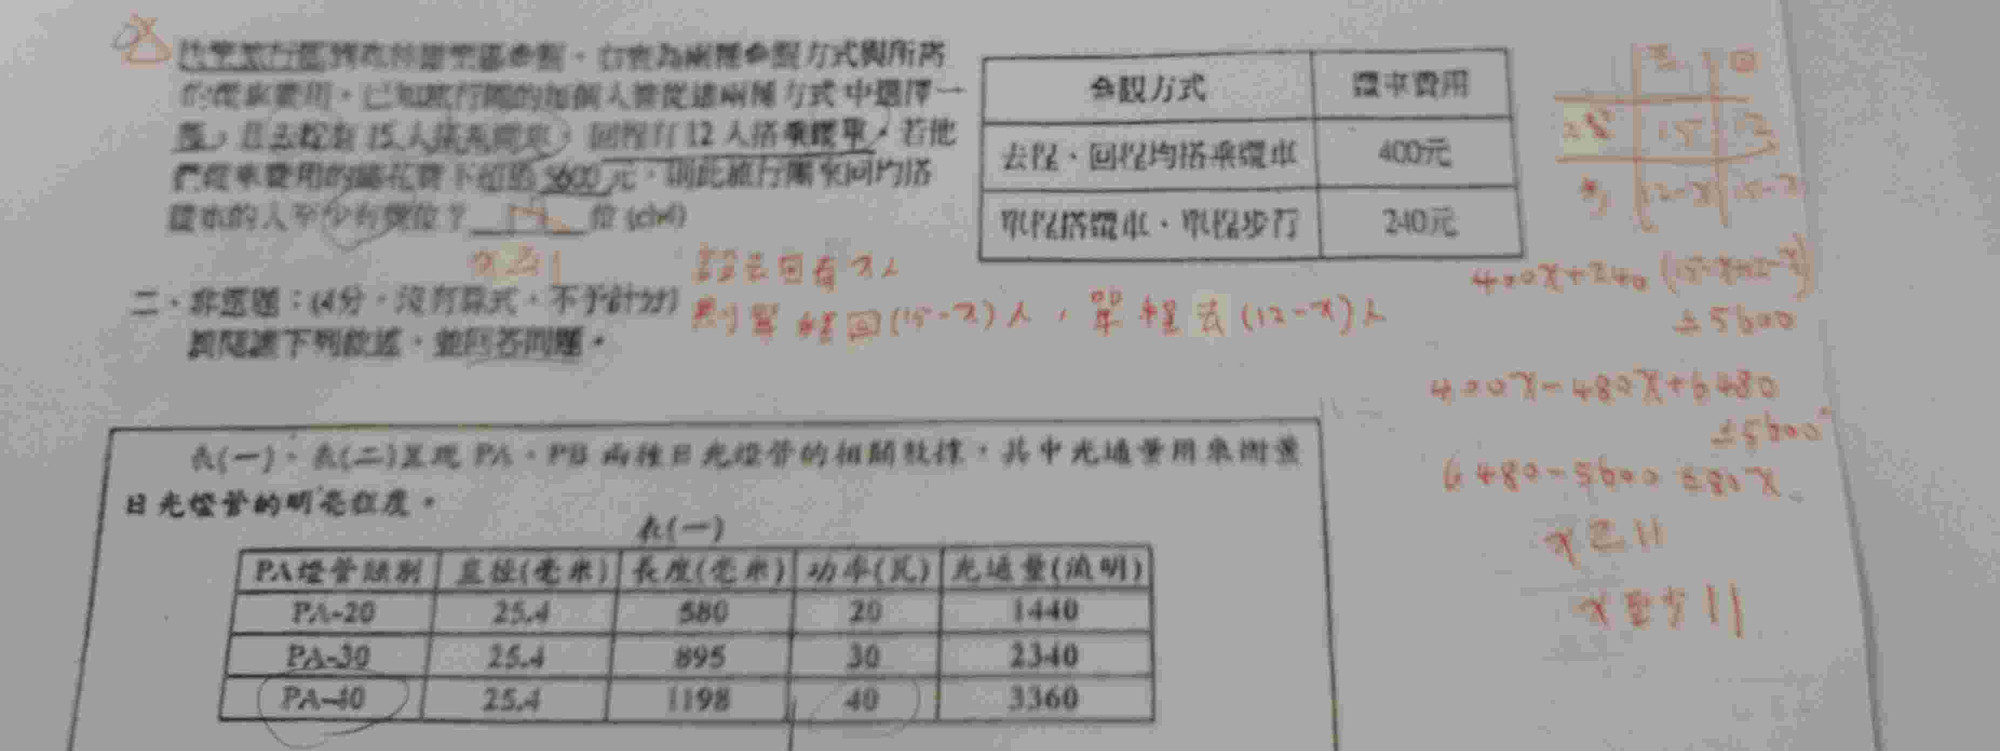 旅行團到森林遊樂區參觀,右表為兩種參觀方式與所需
的纜車費用,已知旅行團的每個人皆從這兩種方式中選擇一
種,且去程有15人搭乘纜車,回程有12人搭乘纜車,若他
們纜車費用的總花費不超過5600元,則此旅行團來回均搭
纜車的人至少有幾位? 位 (ch4)
參觀方式 纜車費用
去程、回程均搭乘纜車 400元
單程搭纜車、單程步行 240元
去 回
15 12
12-x 15-x
x≥11
設去回有x人
則單程回(15-x)人,單程去(12-x)人
400x+240(15-x+12-x)
≤5600
400x-480x+6480
≤5600
6480-5600≤80x
x≥11
x至少11
二、非選題:(4分,沒有算式,不予計分)
請閱讀下列敘述,並回答問題。
表(一)、表(二)呈現PA、PB兩種日光燈管的相關數據,其中光通量用來衡量
日光燈管的明亮程度。
表(一)
PA燈管類別 直徑(毫米) 長度(毫米) 功率(瓦) 光通量(流明)
PA-20 25.4 580 20 1440
PA-30 25.4 895 30 2340
PA-40 25.4 1198 40 3360